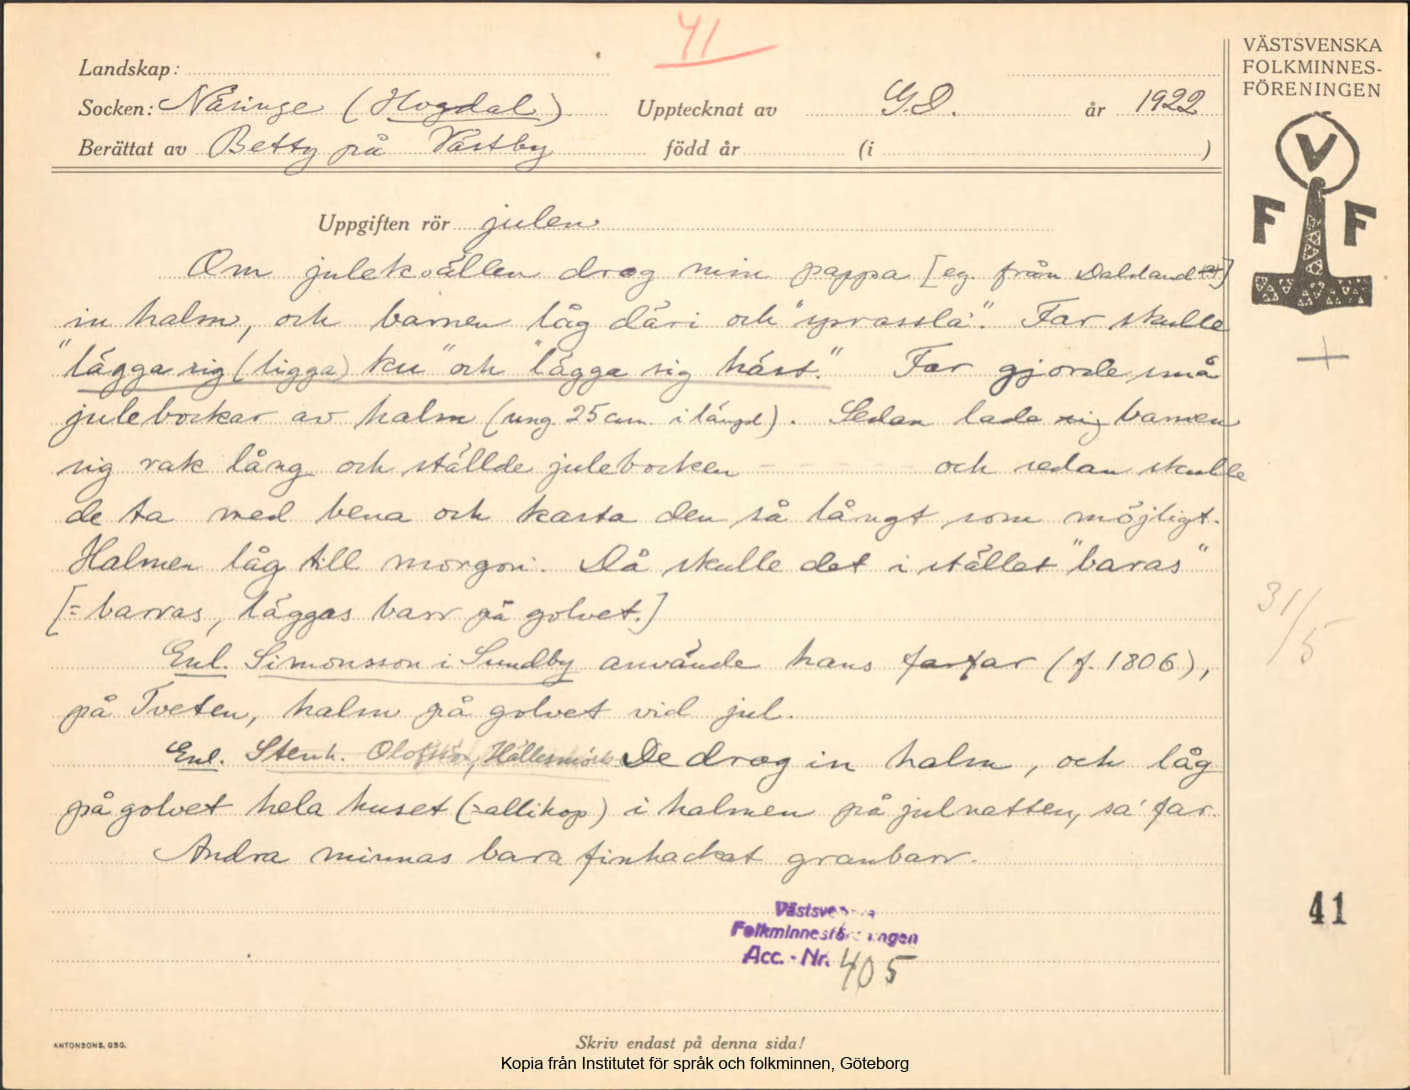 41
Landskap:
Socken: Näsinge (Hogdal)
Upptecknat av G.D. år 1922
Berättat av Betty på Västby född år (i )
VÄSTSVENSKA
FOLKMINNES-
FÖRENINGEN
V
F F
Uppgiften rör julen
Om julekvällen drog min pappa [eg. från Dalsland]
in halm, och barnen låg däri och "sprassla". Far skulle
"lägga sig (ligga) ku" och "lägga sig häst." Far gjorde små
julebockar av halm (ung. 25 cm. i längd). Sedan lade sig barnen
sig rak lång och ställde julebocken - - - - - och sedan skulle
de ta med bena och kasta den så långt som möjligt.
Halmen låg till morgon. Då skulle det i stället "baras"
[= barras, läggas barr på golvet.]
Enl. Simonsson i Sundby använde hans farfar (f. 1806),
på Tveten, halm på golvet vid jul.
Enl. Stenh. Olofsson, Hällesmörk De drog in halm, och låg
på golvet hela huset (=allihop) i halmen på julnatten, sa' far.
Andra minnas bara finhackat granbarr.
31/5
41
Västsvenska
Folkminnesföreningen
Acc. - Nr. 405
ANTONSONS, GBG.
Skriv endast på denna sida!
Kopia från Institutet för språk och folkminnen, Göteborg